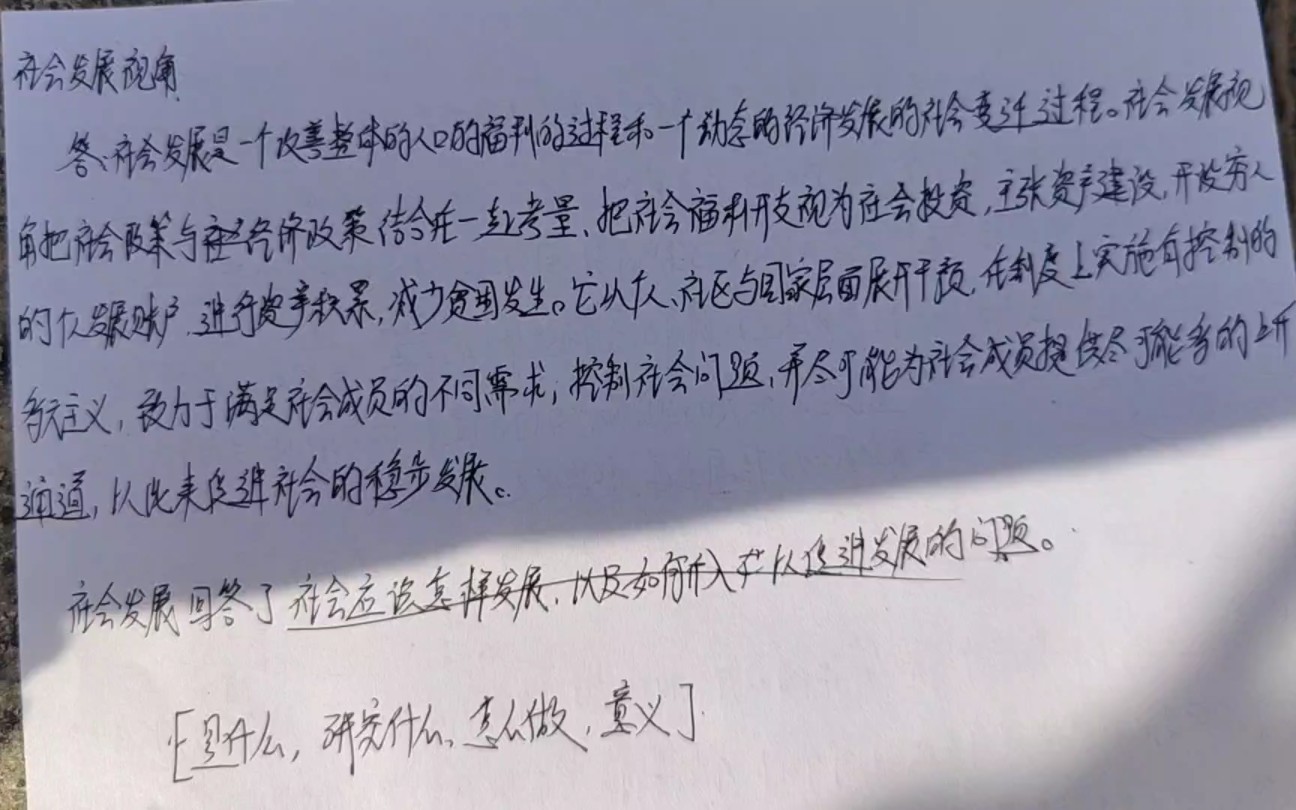 社会发展视角
答:社会发展是一个改善整体的人口的福利的过程和一个动态的经济发展的社会变迁过程。社会发展视
角把社会政策与经济政策结合在一起考量、把社会福利开支视为社会投资,主张资产建设,开设穷人
的个人发展账户、进行资产积累,减少贫困发生。它从个人、社区与国家层面展开干预,在制度上实施有控制的
多元主义,致力于满足社会成员的不同需求,控制社会问题,并尽可能为社会成员提供尽可能多的上升
通道,以此来促进社会的稳步发展。
社会发展回答了社会应该怎样发展、以及如何介入才以促进发展的问题。
[是什么,研究什么、怎么做,意义]